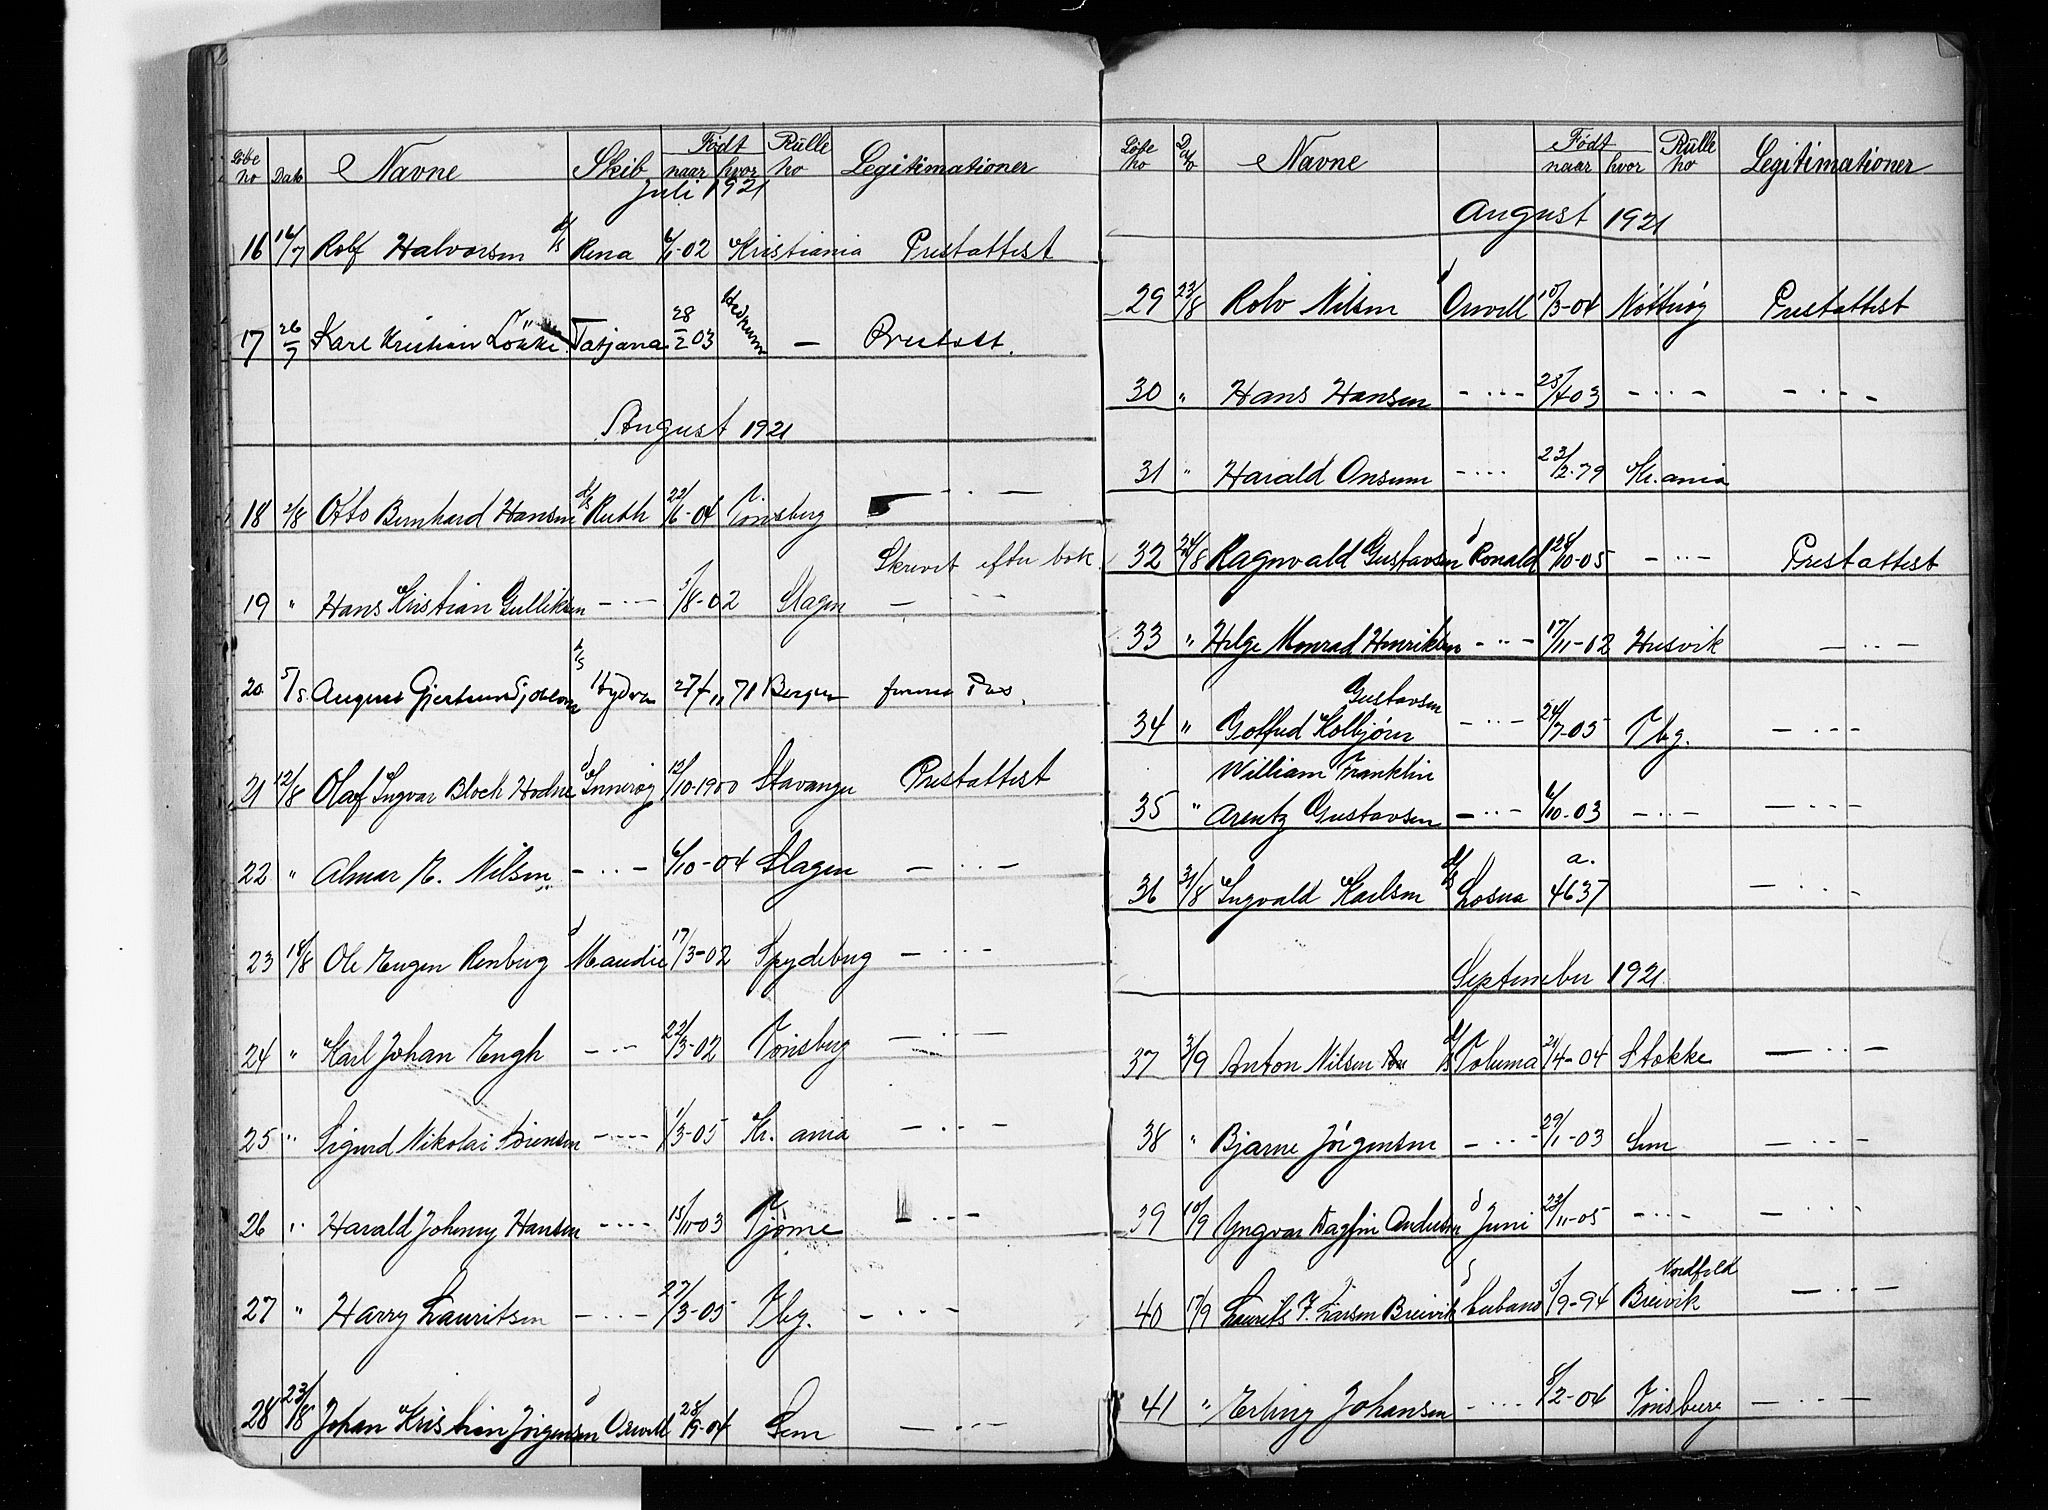 Løbe no Dato Navne Skib Født naar hvor Rulle no Legitimationer
Juli 1921
16 16/7 Rolf Halvorsen d/s Rena 6/1-02 Kristiania Prestattest
17 26/7 Karl Kristian Lökke Tatjana 28/2 03 Hedrum — Prestatt.
August 1921
18 2/8 Otto Bernhard Hansen d/s Ruth 22/6-04 Tønsberg — " —
Skrevet efter bok
19 " Hans Kristian Gulliksen — " — 5/8-02 Slagen — " —
20 5/8 August Gjertsen Hydra 27/11 71 Bergen Pas.
21 12/8 Olaf Ingvar Bloch Hodne d Innerøy 12/10-1900 Stavanger Prestattest
22 " Almar E. Nilsen — " — 6/10-04 Slagen — " —
23 18/8 Ole Eugen Renberg d Maudie 17/3-02 Spydeberg — " —
24 " Karl Johan Engh — " — 22/3-02 Tønsberg — " —
25 " Sigurd Nikolai Sørensen — " — 1/3-05 Kr. ania — " —
26 " Harald Johnny Hansen — " — 15/11-03 Tjøme — " —
27 " Harry Lauritsen — " — 27/3-05 Tbg. — " —
28 23/8 Johan Kristian Jørgensen d Orwell 28/9-04 Sem — " —
Løbe no Dato Navne Født naar hvor Rulle no Legitimationer
August 1921
29 23/8 Rolv Nilsen d Orwell 10/3-04 Nøtterøy Prestattest
30 " Hans Hansen — " — 25/4 03 — " — — " —
31 " Harald Onsum — " — 23/2-79 Kr. ania
32 24/8 Ragnvald Gustavsen d Ronald 28/10-05 — " — Prestattest
33 " Helge Monrad Henriksen — " — 17/11-02 Husvik — " —
Gustavsen
34 " Gotfred Kolbjørn — " — 24/7-05 Tbg. — " —
William Franklin
35 " Arentz Gustavsen — " — 6/10-03 — " — — " —
36 31/8 Ingvald Karlsen d/s Losna a. 4637 — " —
September 1921
37 3/9 Anton Nilsen d/s Toluma 21/4-04 Stokke — " —
38 " Bjarne Jørgensen — " — 29/1-03 Sem — " —
39 10/9 Yngvar Dagfin Andersen d Juni 23/11-05 — " — — " —
Nordfold
40 17/9 Laurits F. Larsen Breivik d Cubano 5/9-94 Breivik — " —
41 " Erling Johansen — " — 8/2-04 Tønsberg — " —